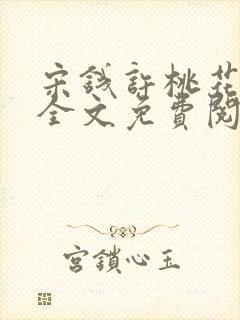 宋钱許桃花
全文免費閱
宮鎖心玉